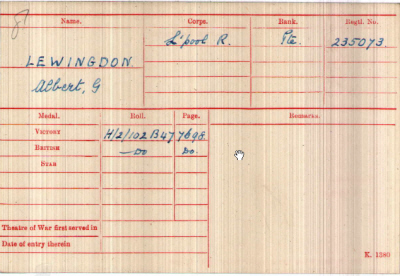 Name. Corps. Rank. Regtl. No.
L'pool R. Pte. 235073
LEWINGDON.
Albert, G
Medal. Roll. Page. Remarks.
VICTORY H/2/102B47 7698.
BRITISH —Do Do.
STAR
Theatre of War first served in
Date of entry therein
K. 1380